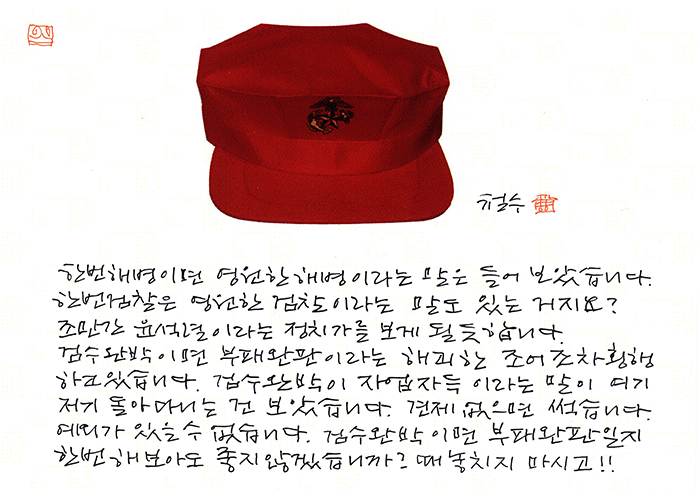 철수
한번해병이면 영원한해병이라는 말은 들어 보았습니다.
한번검찰은 영원한 검찰이라는 말도 있는 거지요?
조만간 윤석열이라는 정치가를 보게 될 듯합니다.
검수완박이면 부패완판이라는 해괴한 조어조차횡행
하고있습니다. 검수완박이 자업자득 이라는 말이 여기
저기 돌아다니는 건 보았습니다. 견제 없으면 썩습니다.
예외가 있을수 없습니다. 검수완박 이면 부패완판일지
한번해보아도 좋지않겠습니까? 때놓치지 마시고!!